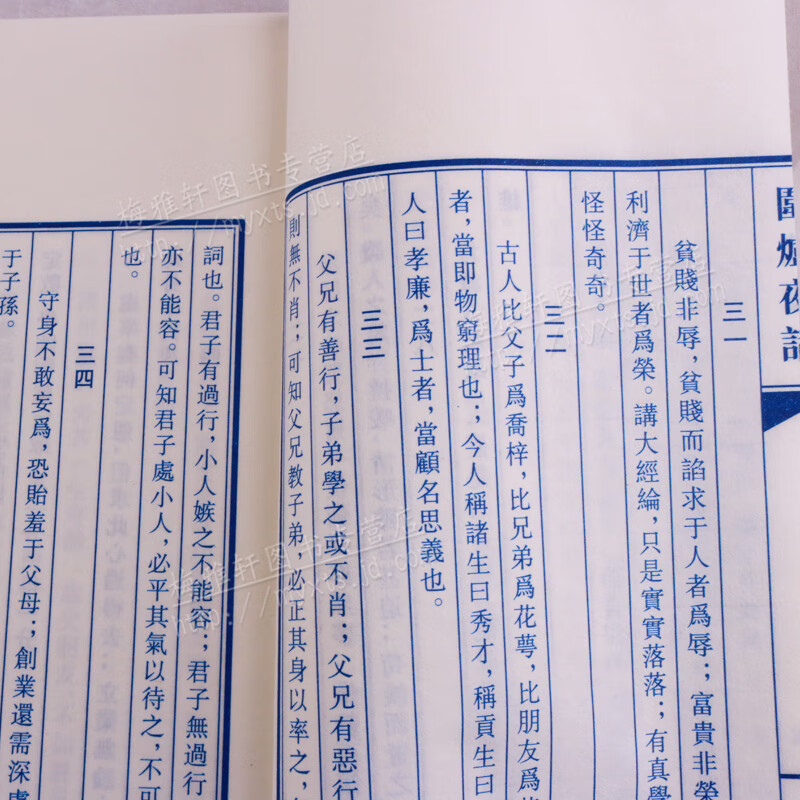 圍爐夜話
三一
貧賤非辱，貧賤而諂求于人者爲辱；富貴非榮
利濟于世者爲榮。講大經綸，只是實實落落；有真學
怪怪奇奇。
三二
古人比父子爲喬梓，比兄弟爲花萼，比朋友爲
者，當即物窮理也；今人稱諸生曰秀才，稱貢生曰
人曰孝廉，爲士者，當顧名思義也。
三三
父兄有善行，子弟學之或不肖；父兄有惡行
則無不肖；可知父兄教子弟，必正其身以率之，
詞也。君子有過行，小人嫉之不能容；君子無過行
亦不能容。可知君子處小人，必平其氣以待之，不可
也。
三四
守身不敢妄爲，恐貽羞于父母；創業還需深慮
于子孫。
梅雅轩图书专营店
http://myxts.jd.com
梅雅轩图书专营店
http://myxts.jd.com